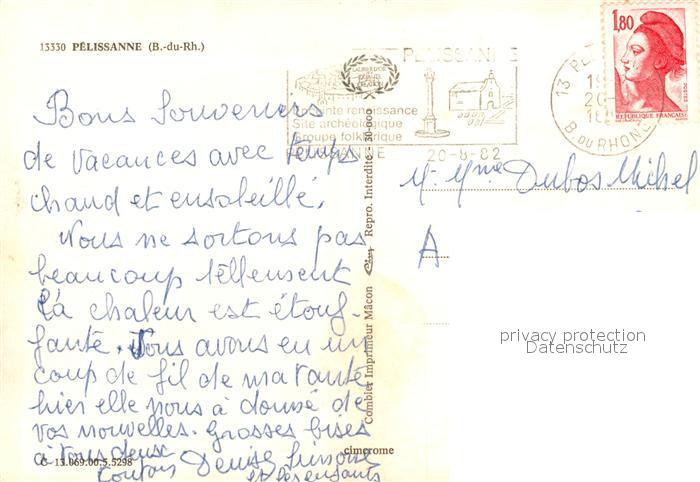 13330 PÉLISSANNE (B.-du-Rh.)
Bons Souveniers
de vacances avec temps
chaud et ensoleillé.
Nous ne sortons pas
beaucoup tellement
la chaleur est étouf-
fante. Vous avons eu un
coup de fil de ma tante
hier elle nous à donné de
vos nouvelles. Grosses bises
à tous deux
Denise Simone
et les enfants
C 13.069.00.5.5298
cimcrome
Combier Imprimeur Mâcon Cim Repro. Interdite - 30-000
PÉLISSANNE
renaissance
Site archéologique
Groupe folklorique
20-8-82
13 PÉ
B. DU RHONE
1,80
REPUBLIQUE FRANÇAISE
POSTES
Mr. Mme Dubos Michel
A
privacy protection
Datenschutz